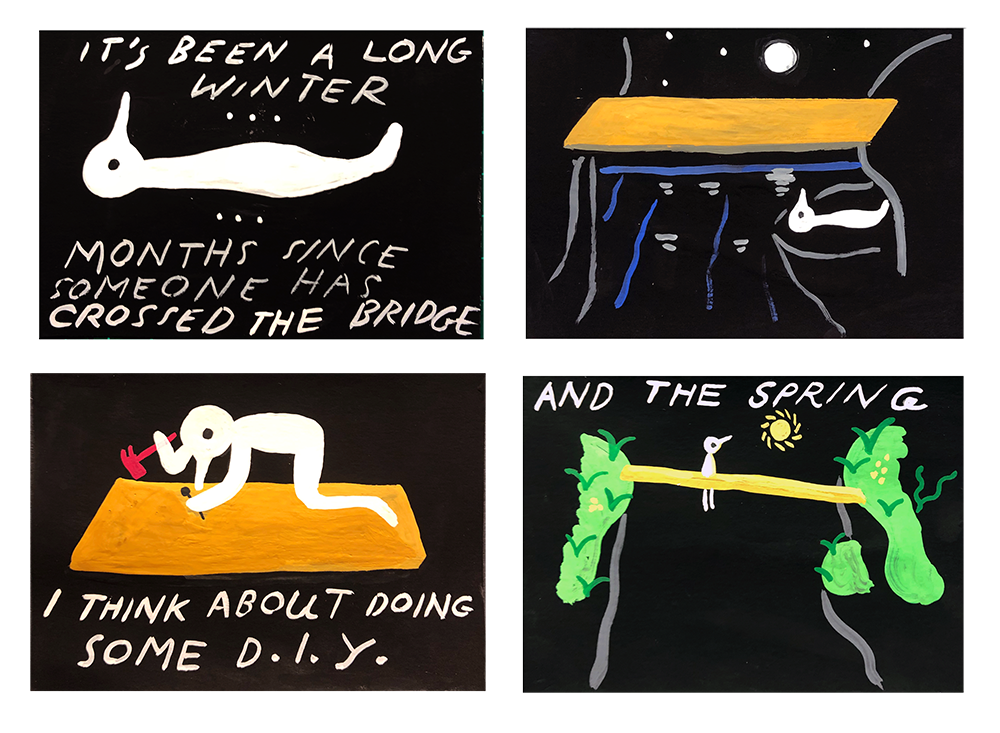 IT'S BEEN A LONG
WINTER
...
...
MONTHS SINCE
SOMEONE HAS
CROSSED THE BRIDGE
I THINK ABOUT DOING
SOME D.I.Y.
AND THE SPRING